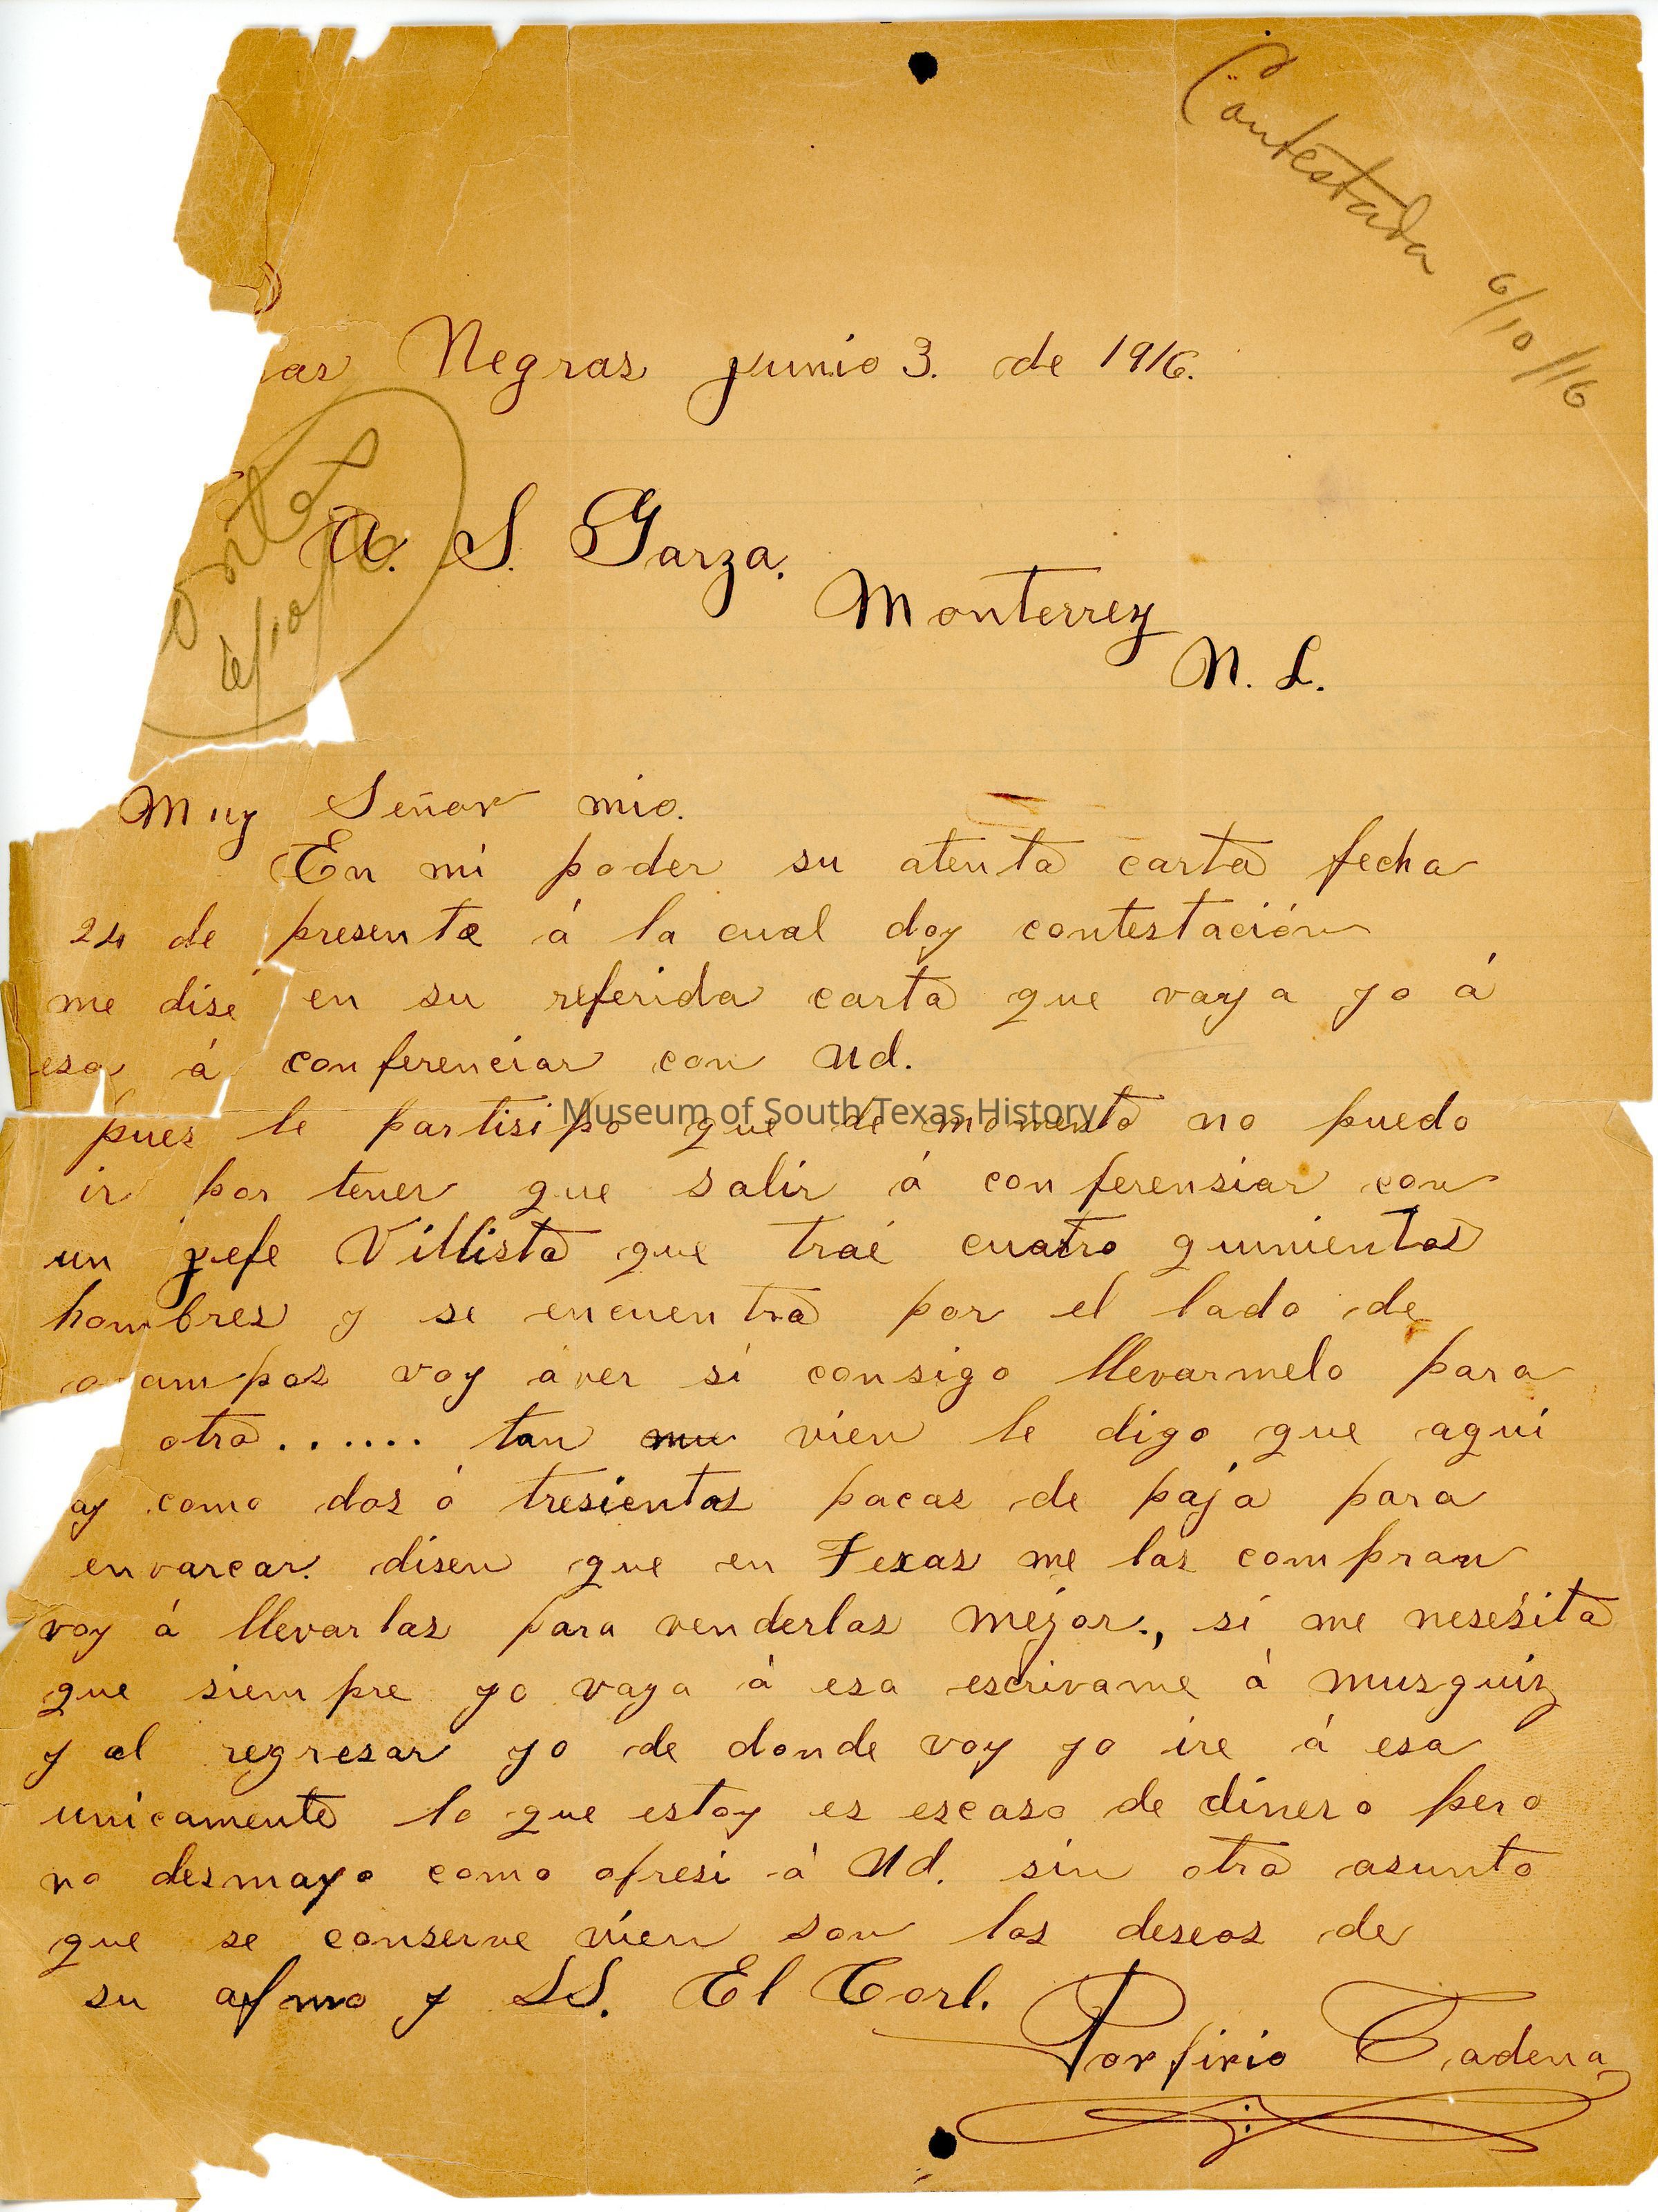 Contestada 6/10/16
as Negras junio 3. de 1916.
6/10/16
A. S. Garza.
Monterrey
N. L.
Muy Señor mio.
En mi poder su atenta carta fecha
24 de presente á la cual doy contestación
me dise en su referida carta que vaya yo á
esa á conferenciar con Ud.
Museum of South Texas History
pues le partisipo que de momento no puedo
ir por tener que salir á conferensiar con
un jefe Villista que traé cuatro quinientos
hombres y se encuentra por el lado de
ocampos voy aver si consigo llevarmelo para
otra....... tan vien le digo que aqui
ay como dos ó tresientas pacas de paja para
envarcar. disen que en Texas me las compran
voy á llevarlas para venderlas mejor., si me nesesita
que siempre yo vaya á esa escrivame á musquiz
y al regresar yo de donde voy yo ire á esa
unicamente lo que estoy es escaso de dinero pero
no desmayo como ofresi á Ud. sin otro asunto
que se conserve vien son los deseos de
su afmo y SS. El Corl. Porfirio Cadena